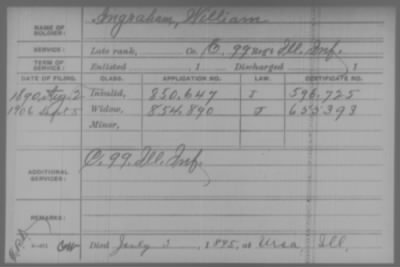 Ingraham, William
NAME OF SOLDIER:
SERVICE: Late rank, Co. C, 99 Reg't Ill. Inf.
TERM OF SERVICE: Enlisted , 1 Discharged , 1
DATE OF FILING. CLASS. APPLICATION NO. LAW. CERTIFICATE NO.
1890, Aug. 2 Invalid, 850.647 J 596.725
1906 Sept 5 Widow, 854.890 J 655393
Minor,
C. 99. Ill. Inf.
ADDITIONAL SERVICES:
REMARKS:
Died July , 1895, at Ursa, Ill,